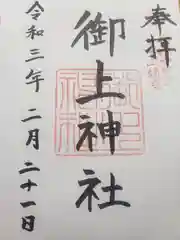 奉拝
御上神社
令和三年二月二十一日